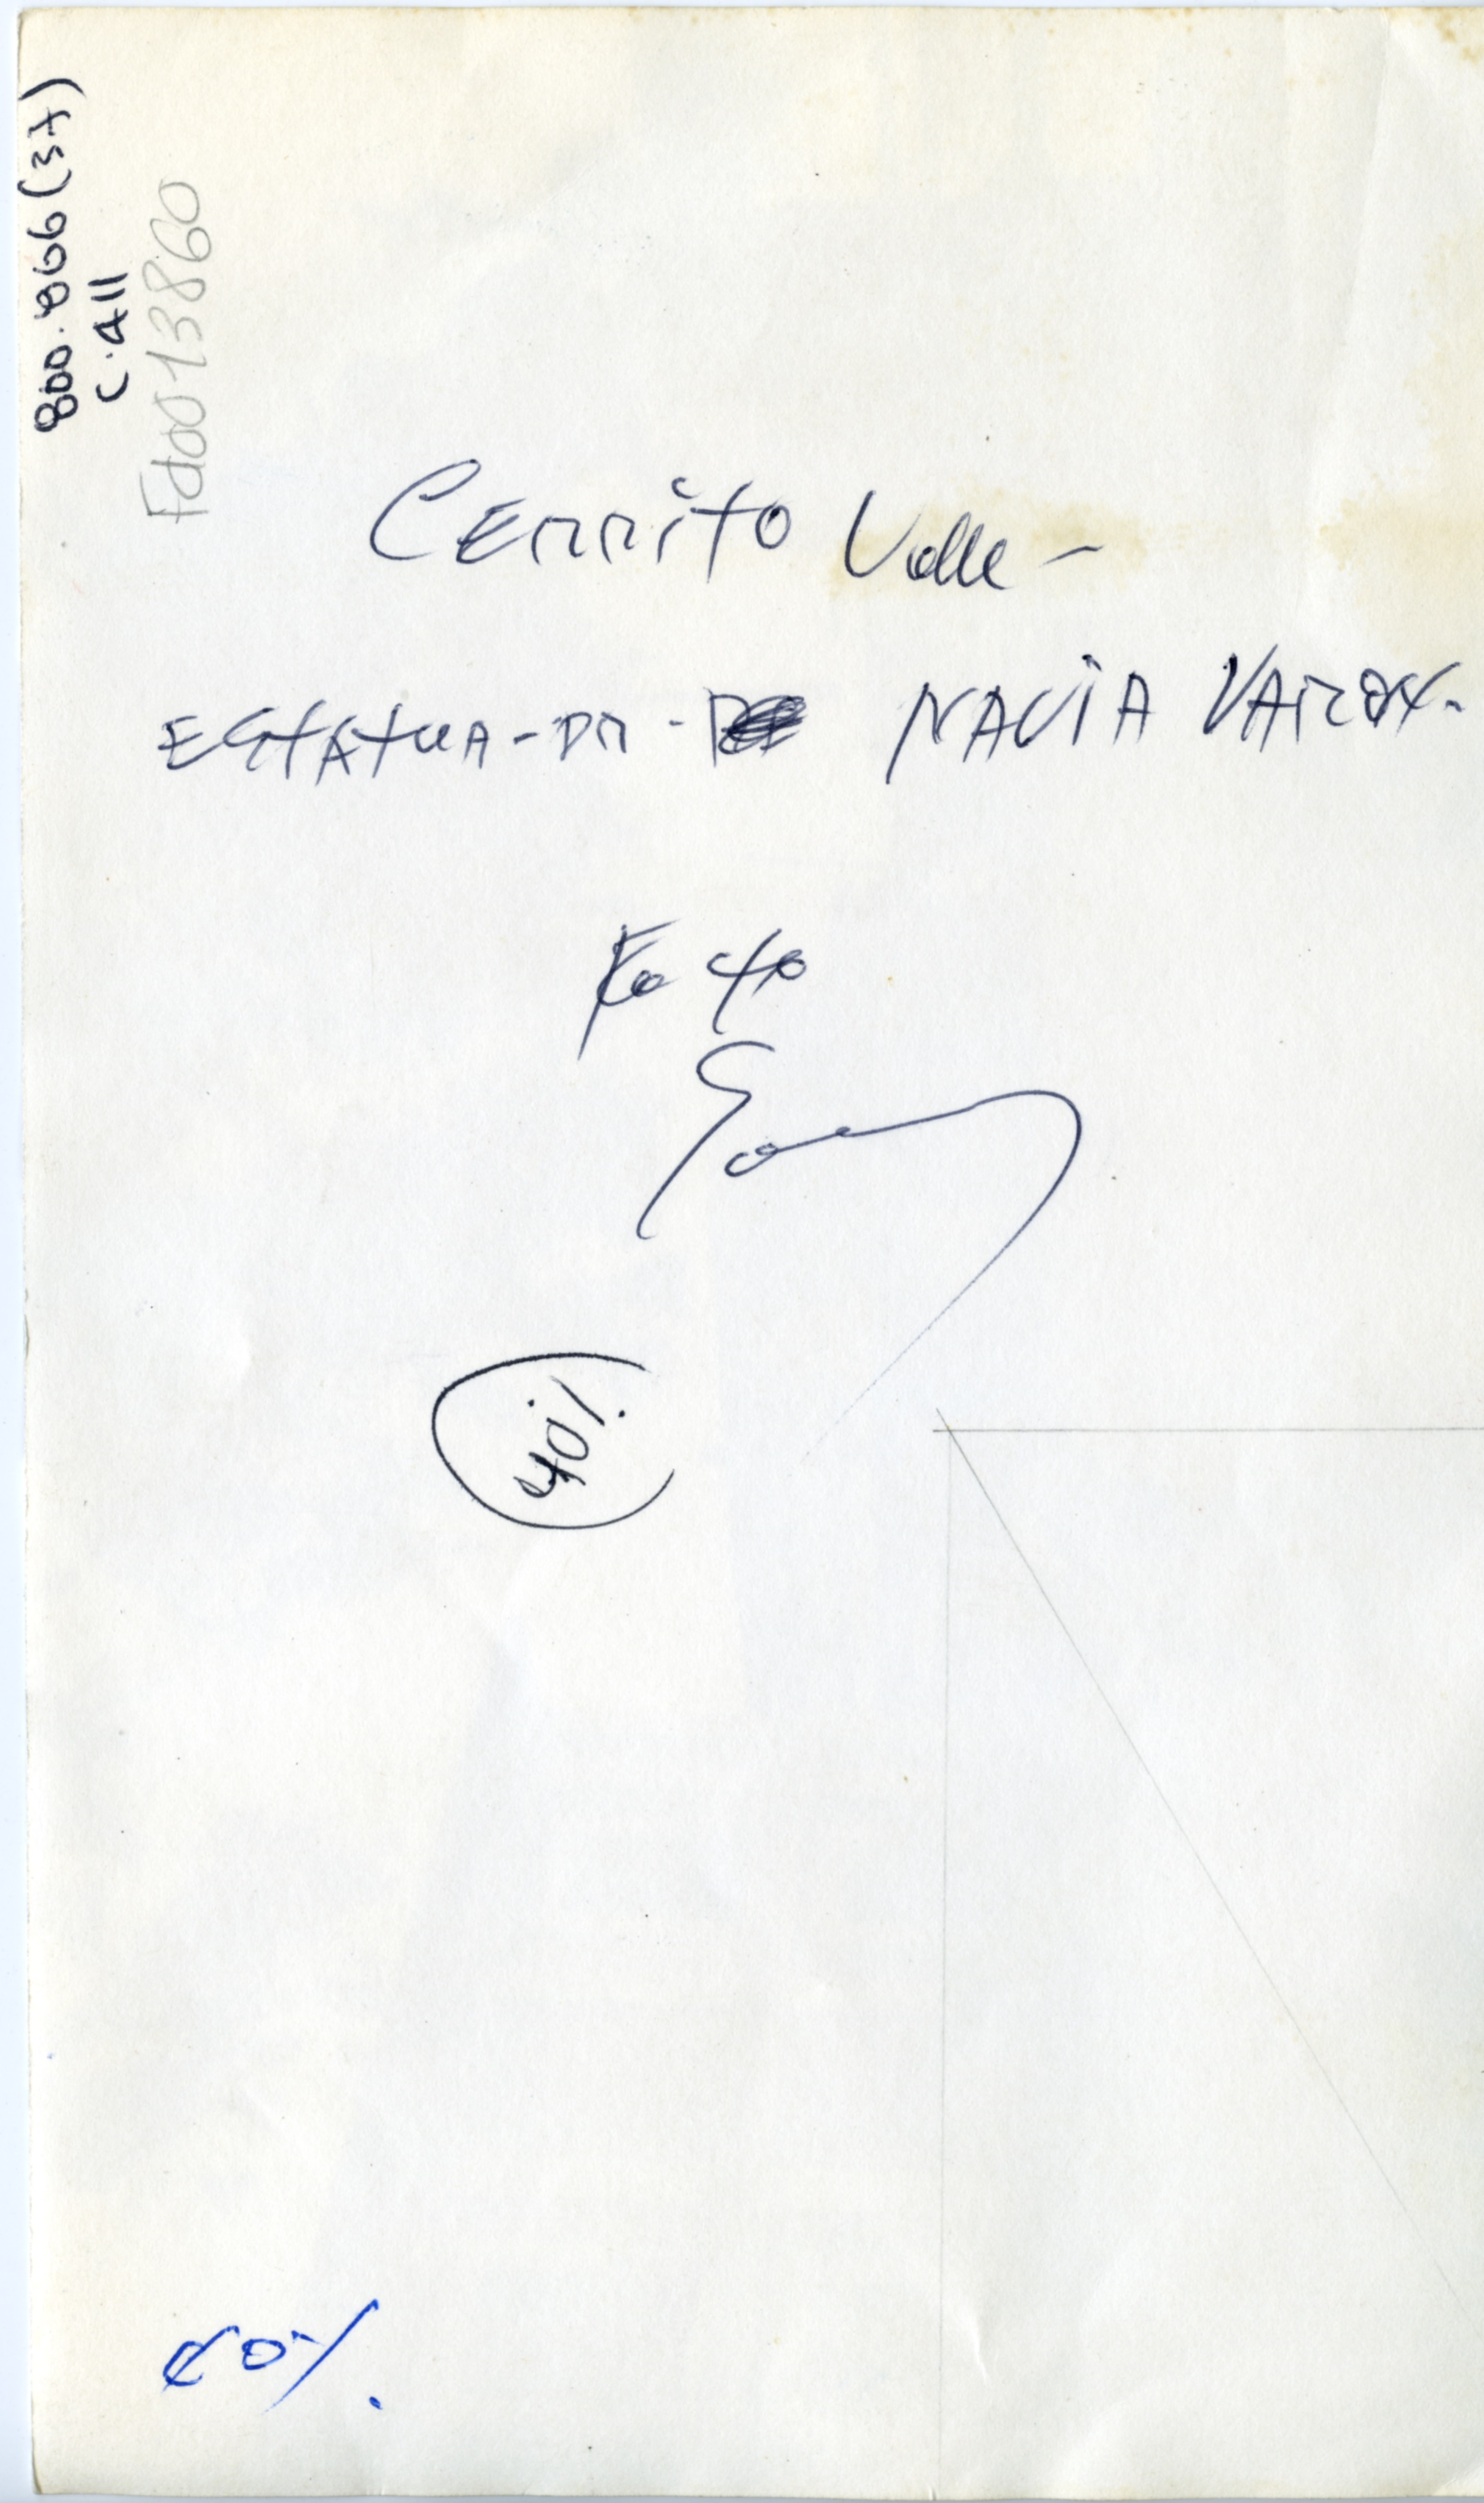 800.866(37)
C.411
Fd0013860
Cerrito Valle -
ESTATUA - DR - NAVIA VARON.
Foto
40%
60%.